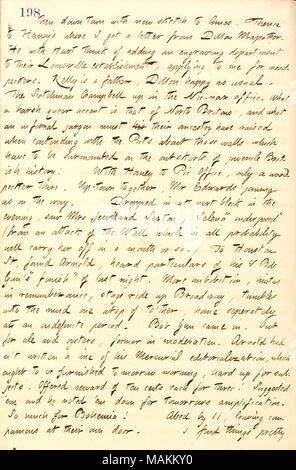 198
then down town with new sketch to Amos. Thence
to Haney's where I got a letter from Dillon Mapother.
He with Hart think of adding an engraving department
to their Louisville establishment, applying to me for wood
peckers. Kelly is a father. Dillon happy as usual.
The Scotchman Campbell up in the office. What
a harsh queer accent is that of North Britons, and what
an infernal jargon must their ancestry have used
when contending with the Picts about those walls which
have to be surmounted in the outskirts of juvenile Brit-
ish history! With Haney to Pic Office, only a wood
pecker there. Up-town together, Mr Edwards joining
us on the way. Dropped in at next block in the
evening, saw Mrs
from an attack of which in all probability
will carry her off in a month or so. To Houston
St. joined Arnold, heard particulars of his &
finish of last night. More inebriation, mutes
in remembrance, stage ride up Broadway, tumble
into the mud one atop of t'other, home seperately
at an indefinite period! Bob Gun came in. Out
for ale and oysters, former in moderation. Arnold had
n't written a line of his Mercurial editorialization, which
ought to be furnished to-morrow morning, hard up for sub-
jects. Offered reward of ten cents each for three! Suggested
'em and he noted 'em down for tomorrows amplification.
So much for Bohemia! Abed by 11, leaving com
panions at their own door. find things pretty
alamy
Image ID: MAKKY0
www.alamy.com